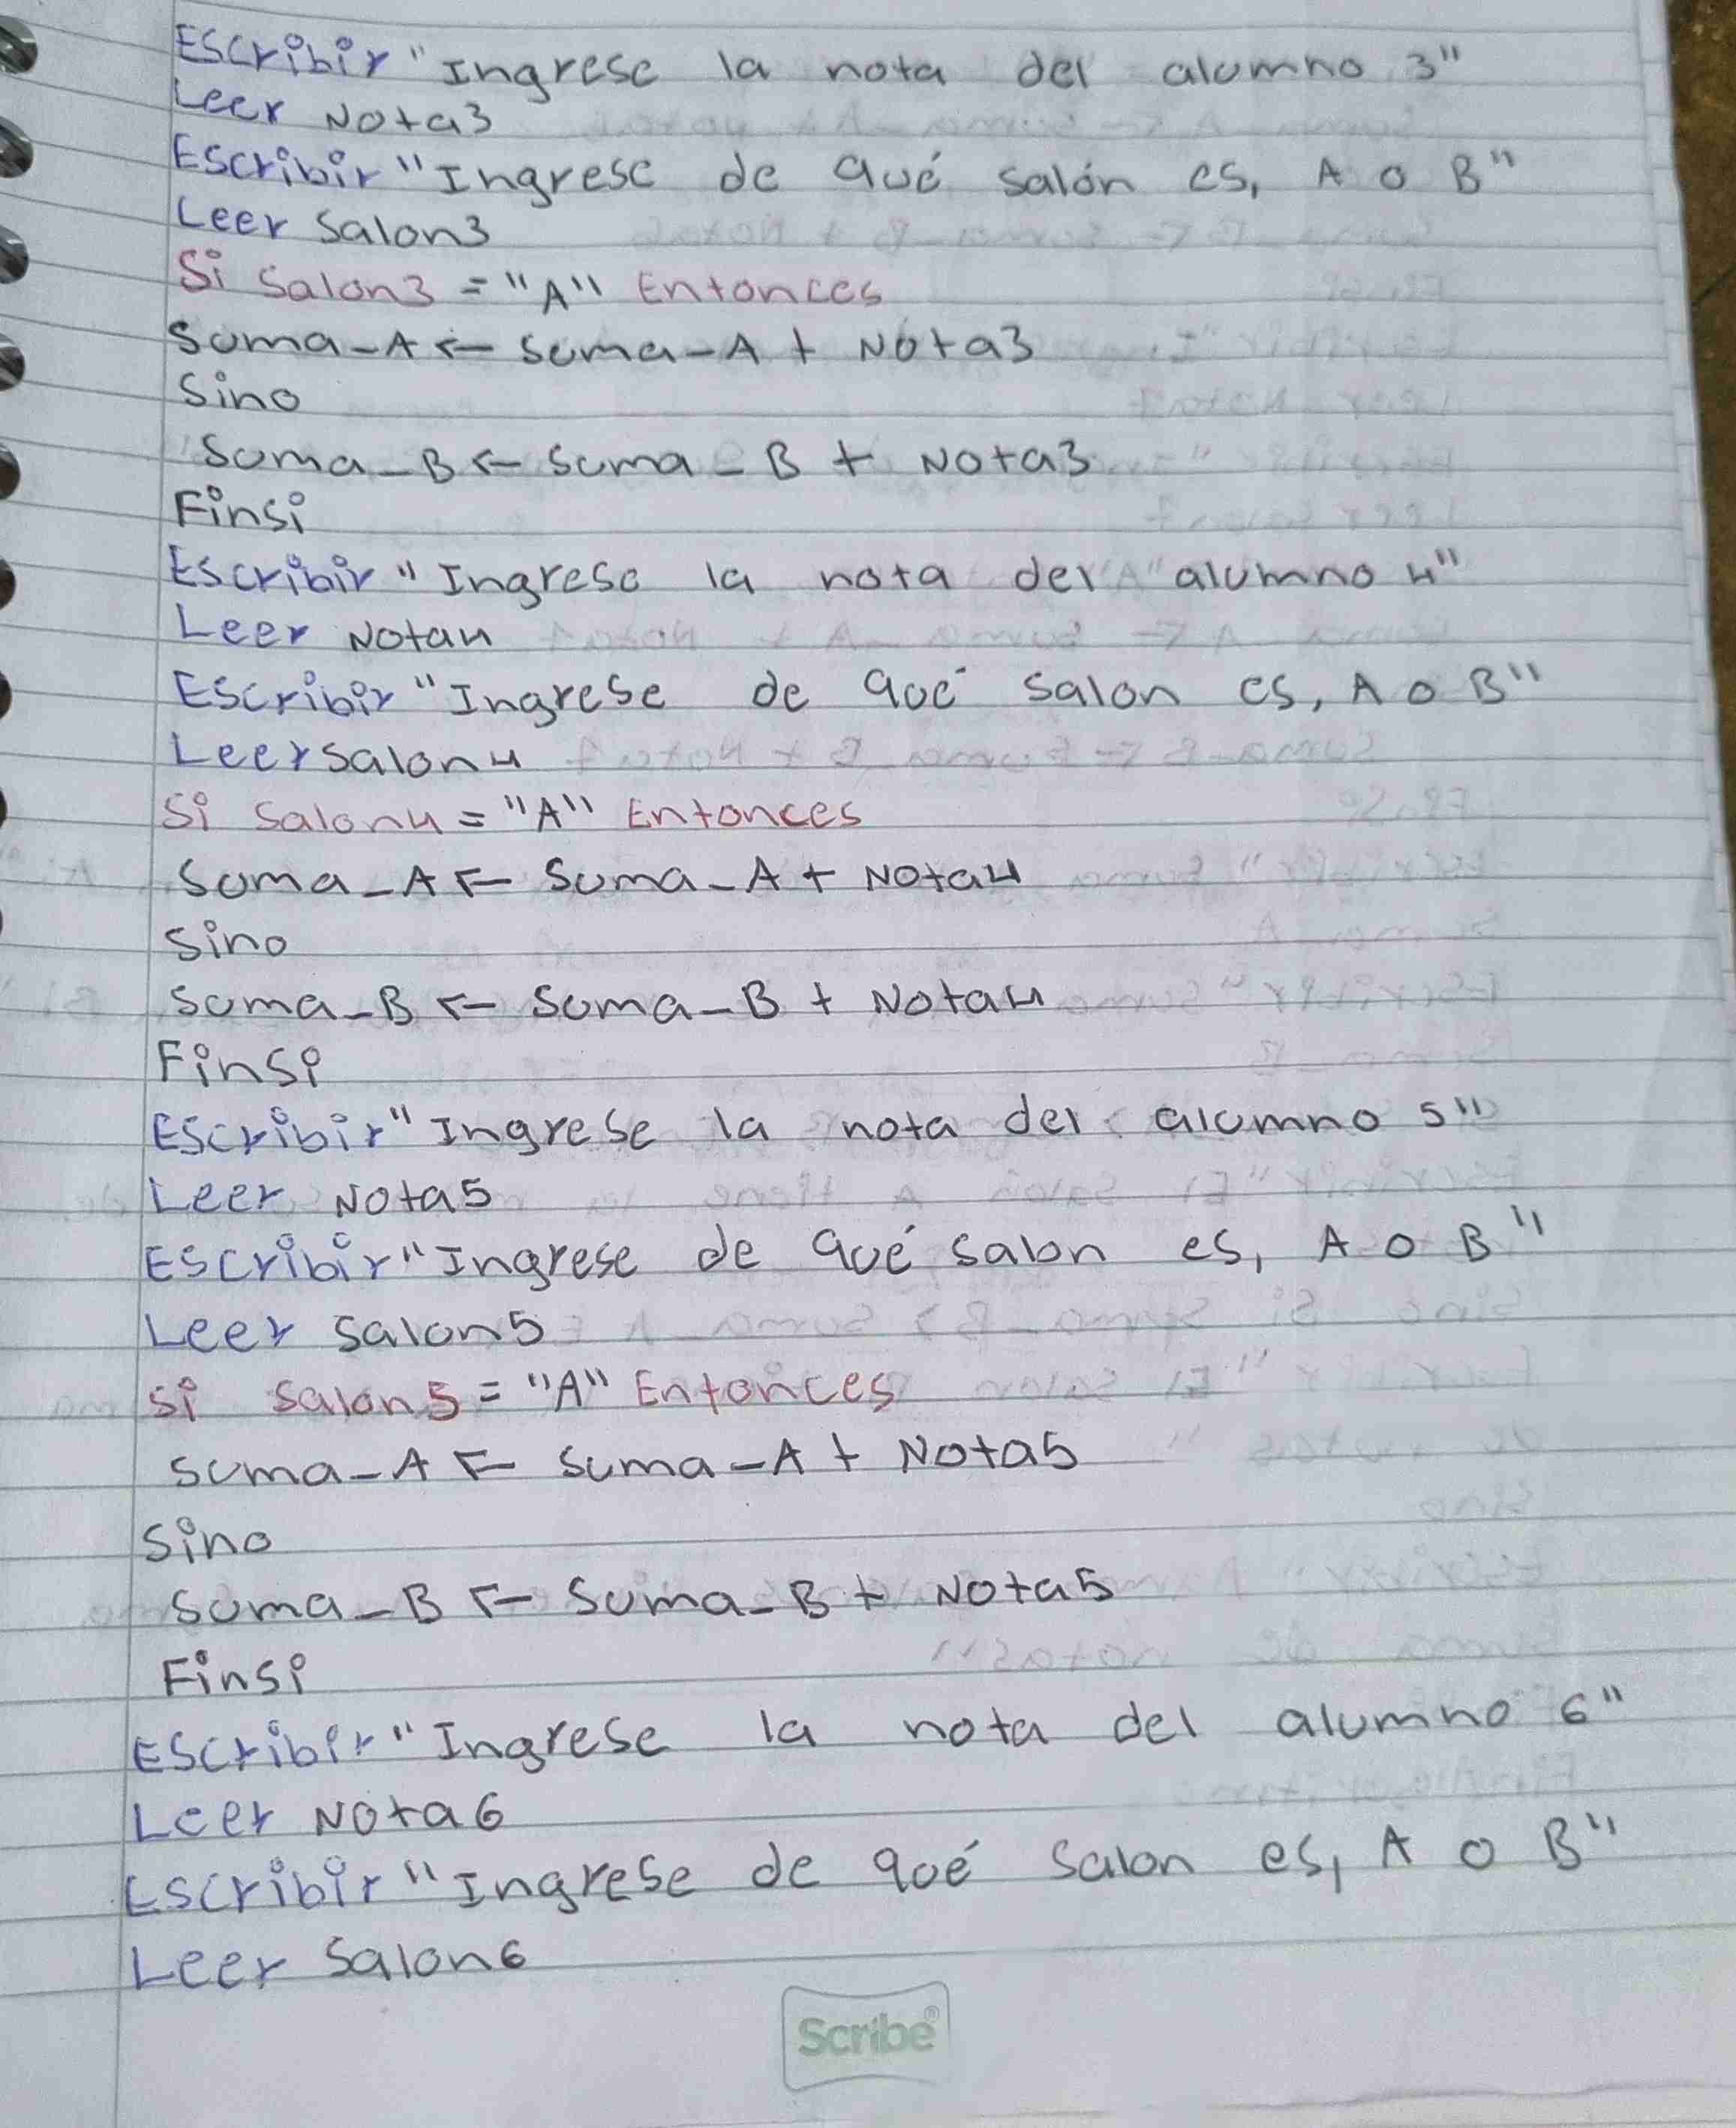 Escribir "Ingrese la nota del alumno 3"
Leer Nota3
Escribir "Ingrese de qué salón es, A o B"
Leer Salon3
Si Salon3 = "A" Entonces
Suma_A ← Suma_A + Nota3
Sino
Suma_B ← Suma_B + Nota3
Finsi
Escribir "Ingrese la nota del alumno 4"
Leer Nota4
Escribir "Ingrese de qué salon es, A o B"
Leer Salon4
Si Salon4 = "A" Entonces
Suma_A ← Suma_A + Nota4
Sino
Suma_B ← Suma_B + Nota4
Finsi
Escribir "Ingrese la nota del alumno 5"
Leer Nota5
Escribir "Ingrese de qué salon es, A o B"
Leer Salon5
Si Salon5 = "A" Entonces
Suma_A ← Suma_A + Nota5
Sino
Suma_B ← Suma_B + Nota5
Finsi
Escribir "Ingrese la nota del alumno 6"
Leer Nota6
Escribir "Ingrese de qué salon es, A o B"
Leer Salon6
Scribe®